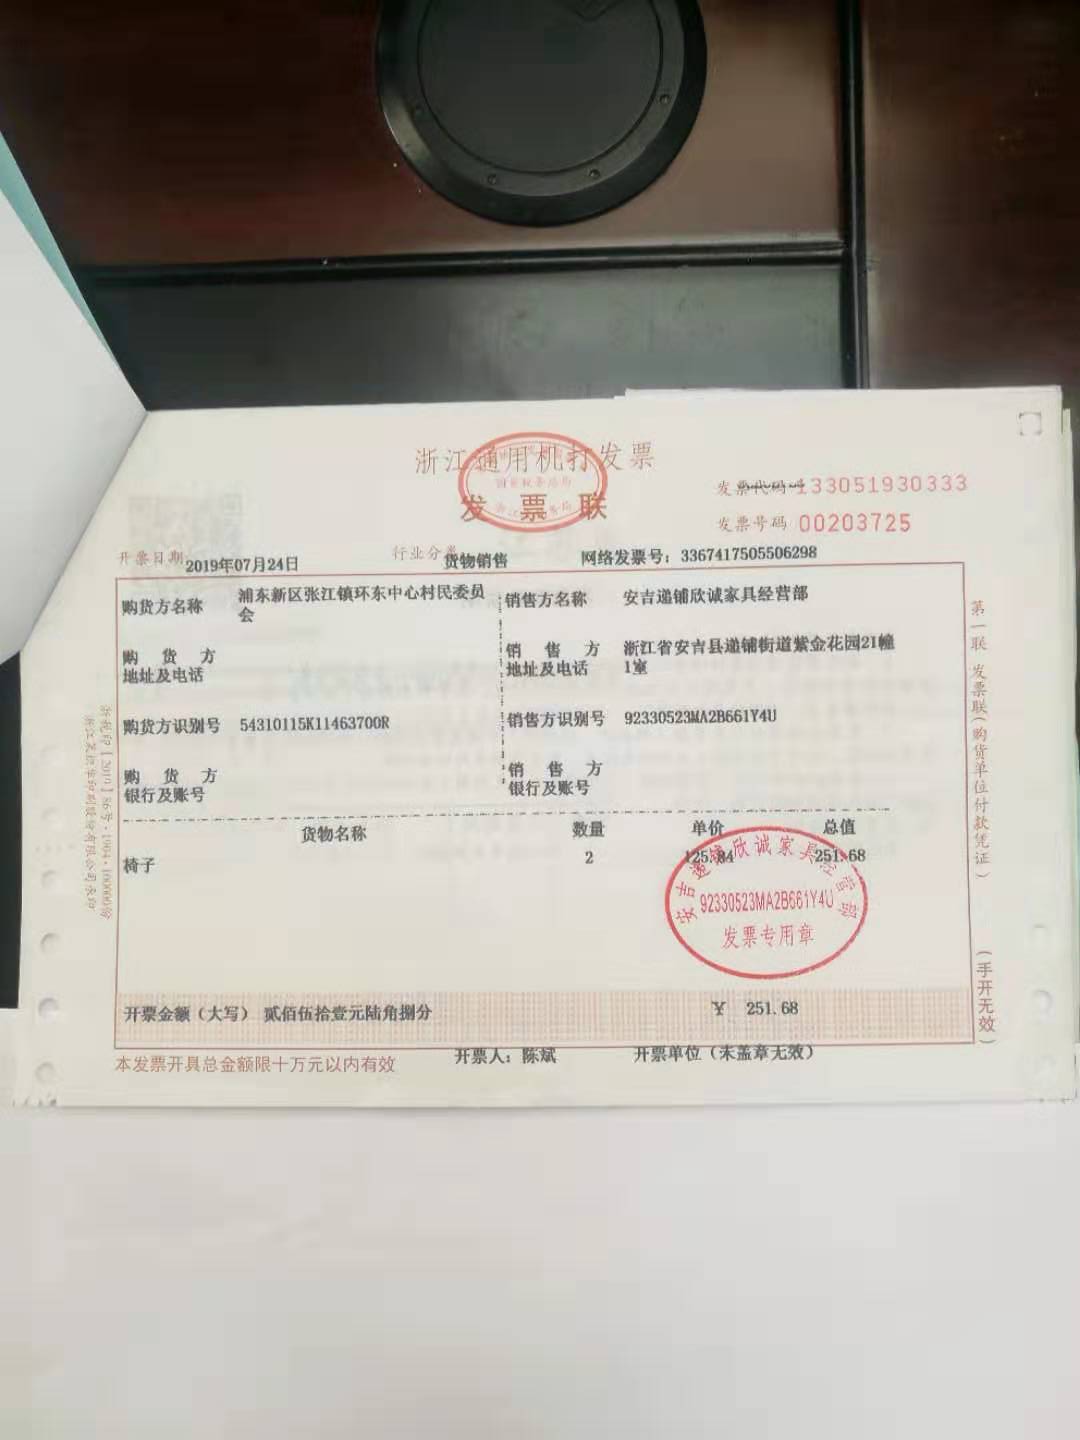 浙江通用机打发票
国家税务总局
发票联
发票代码 133051930333
发票号码 00203725
开票日期 2019年07月24日 行业分类 货物销售 网络发票号：3367417505506298
购货方名称 浦东新区张江镇环东中心村民委员会 销售方名称 安吉递铺欣诚家具经营部
购货方地址及电话 销售方地址及电话 浙江省安吉县递铺街道紫金花园21幢1室
购货方识别号 54310115K11463700R 销售方识别号 92330523MA2B661Y4U
购货方银行及账号 销售方银行及账号
货物名称 数量 单价 总值
椅子 2 125.84 251.68
安吉递铺欣诚家具经营部
92330523MA2B661Y4U
发票专用章
开票金额（大写） 贰佰伍拾壹元陆角捌分 ￥ 251.68
本发票开具总金额限十万元以内有效 开票人：陈斌 开票单位（未盖章无效）
第一联 发票联（购货单位付款凭证）
（手开无效）